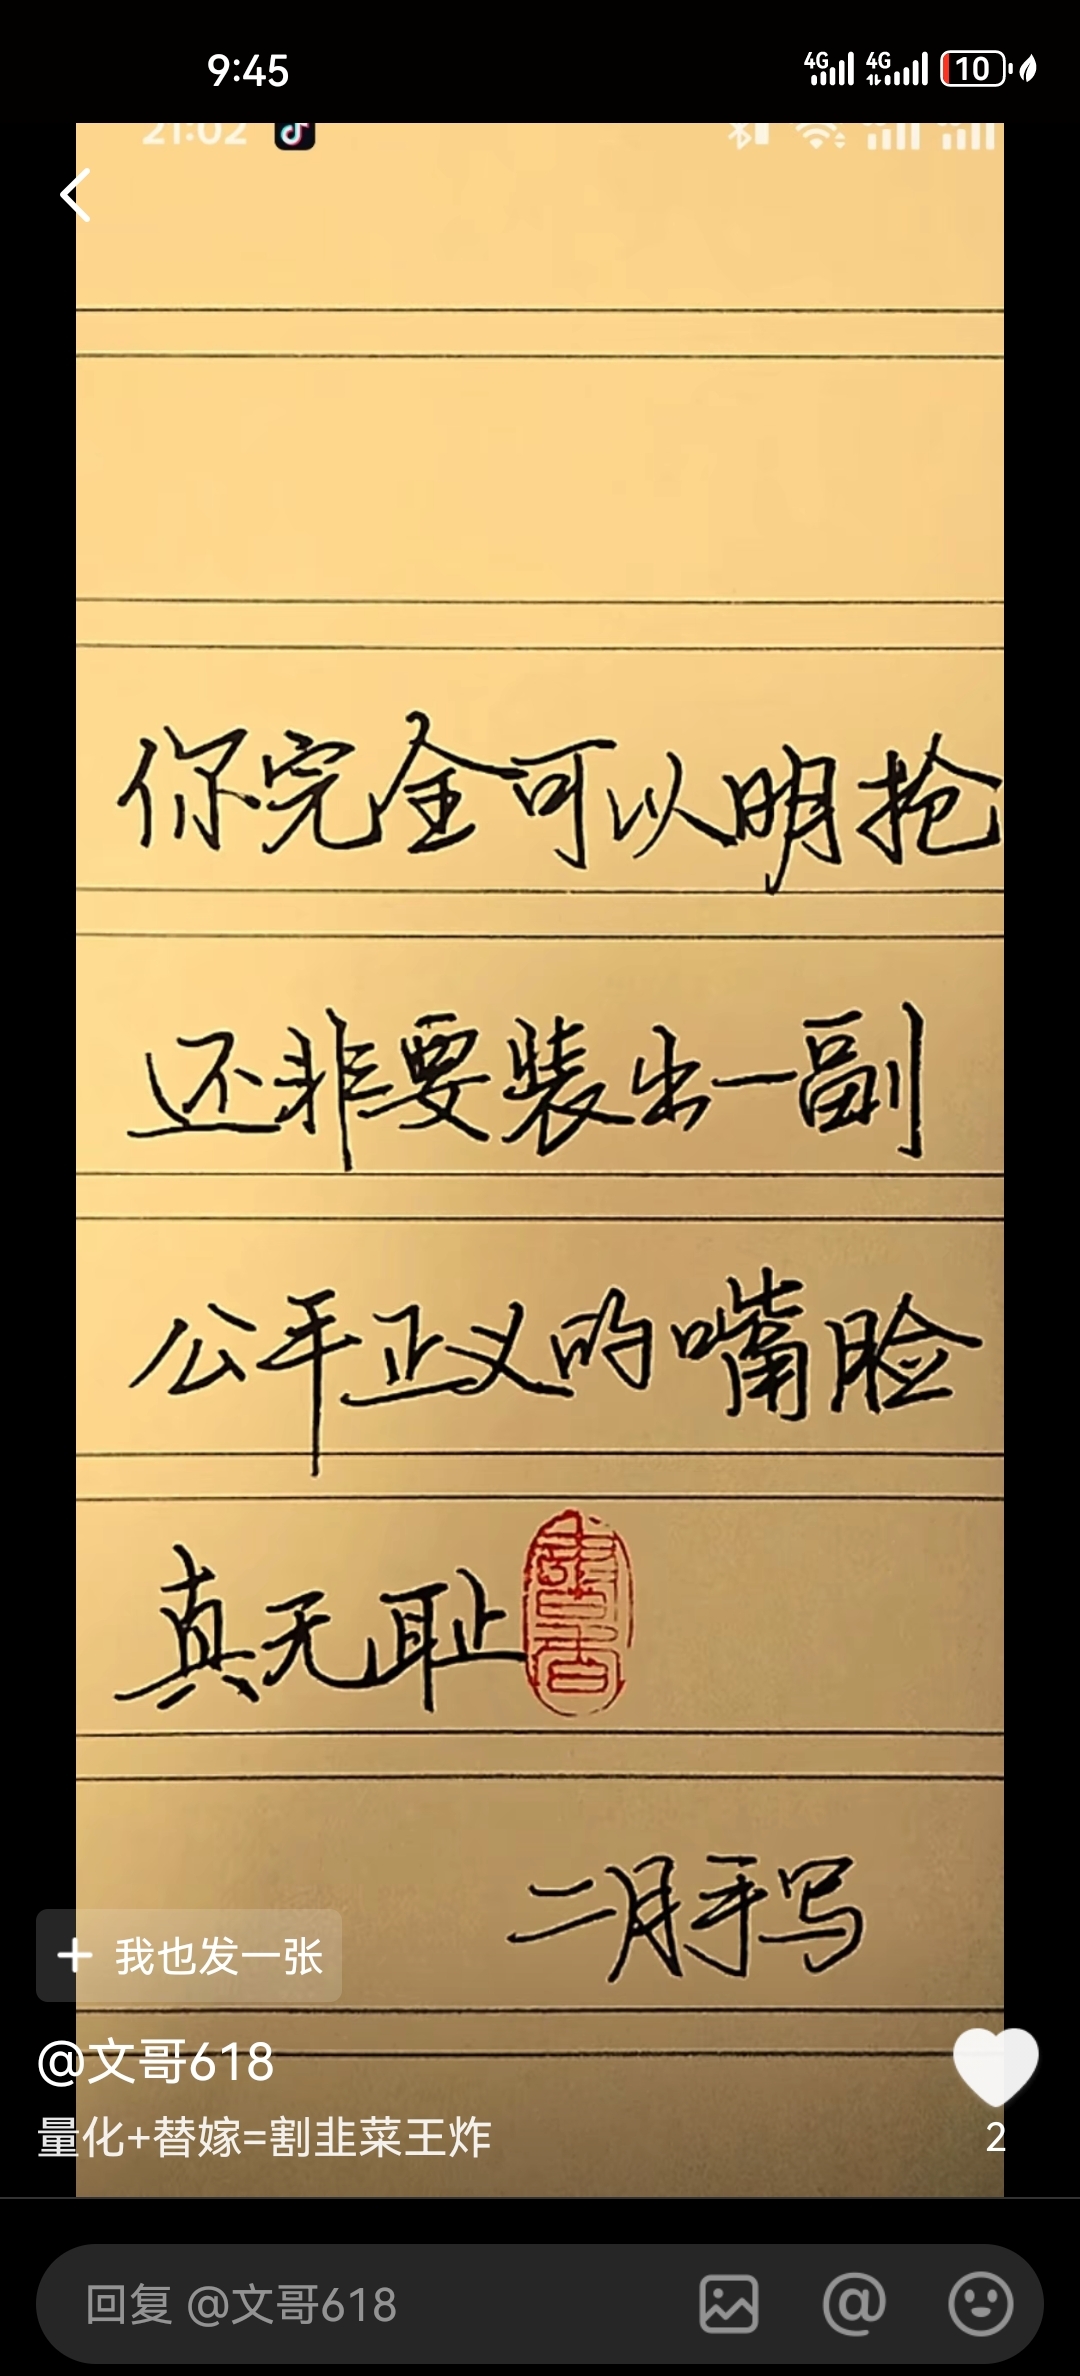 9:45
4G 4G 10
21:02
你完全可以明抢
还非要装出一副
公平正义的嘴脸
真无耻
二月手写
我也发一张
@文哥618
量化+替嫁=割韭菜王炸
2
回复 @文哥618